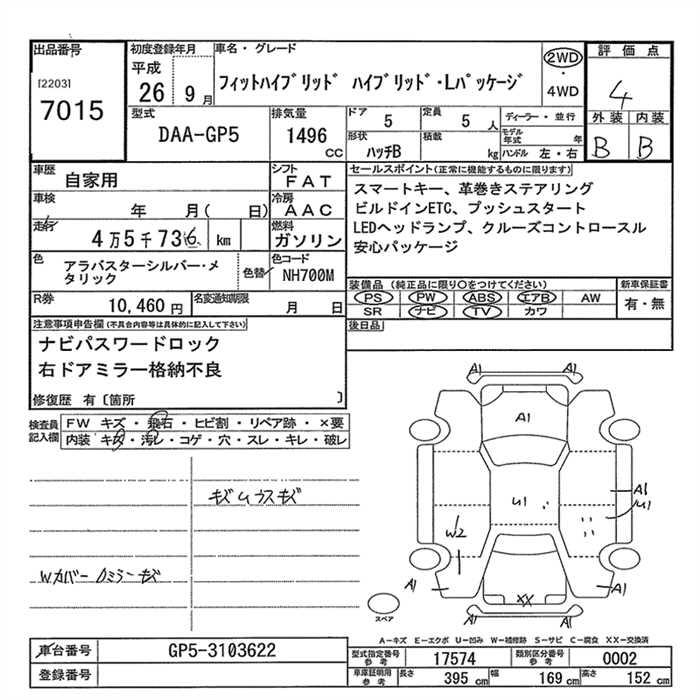 出品番号 初度登録年月 車名・グレード 評価点
[2203] 平成 フィットハイブリッド ハイブリッド・Lパッケージ 2WD ・ 4WD 4
7015 26 9 月 外装 内装
型式 排気量 ドア 5 定員 5 人 ディーラー・並行 B B
DAA-GP5 1496 cc 形状 ハッチB 積載 kg モデル年式 年
ハンドル 左・右
車歴 自家用 シフト FAT セールスポイント(正常に機能するものに限ります)
車検 年 月( 日) 冷房 AAC スマートキー、革巻きステアリング
走行 4万5千736 km 燃料 ガソリン ビルドインETC、プッシュスタート
LEDヘッドランプ、クルーズコントロースル
安心パッケージ
色 アラバスターシルバー・メタリック 色替 色コード NH700M
装備品 (純正品に限り○をつけてください) 新車保証書
R券 10,460 円 名変通知期限 月 日 PS PW ABS エアB AW 有・無
SR ナビ TV カワ
注意事項申告欄(不具合内容等は具体的に記入して下さい) 後日品
ナビパスワードロック
右ドアミラー格納不良
修復歴 有〔箇所 〕
検査員記入欄 FW キズ・飛石・ヒビ割・リペア跡・×要
内装 キズ・汚レ・コゲ・穴・スレ・キレ・破レ
A1 A1
A1
キズムラスキズ U1 A1
U1
W2
Wカバー Dミラーキズ
A1 XX A1
スペア A1 A1
A-キズ E-エクボ U-凹み W-補修跡 S-サビ C-腐食 XX-交換済
車台番号 GP5-3103622 型式指定番号 参考 17574 類別区分番号 参考 0002
登録番号 車庫証明 参考 長さ 395 cm 幅 169 cm 高さ 152 cm